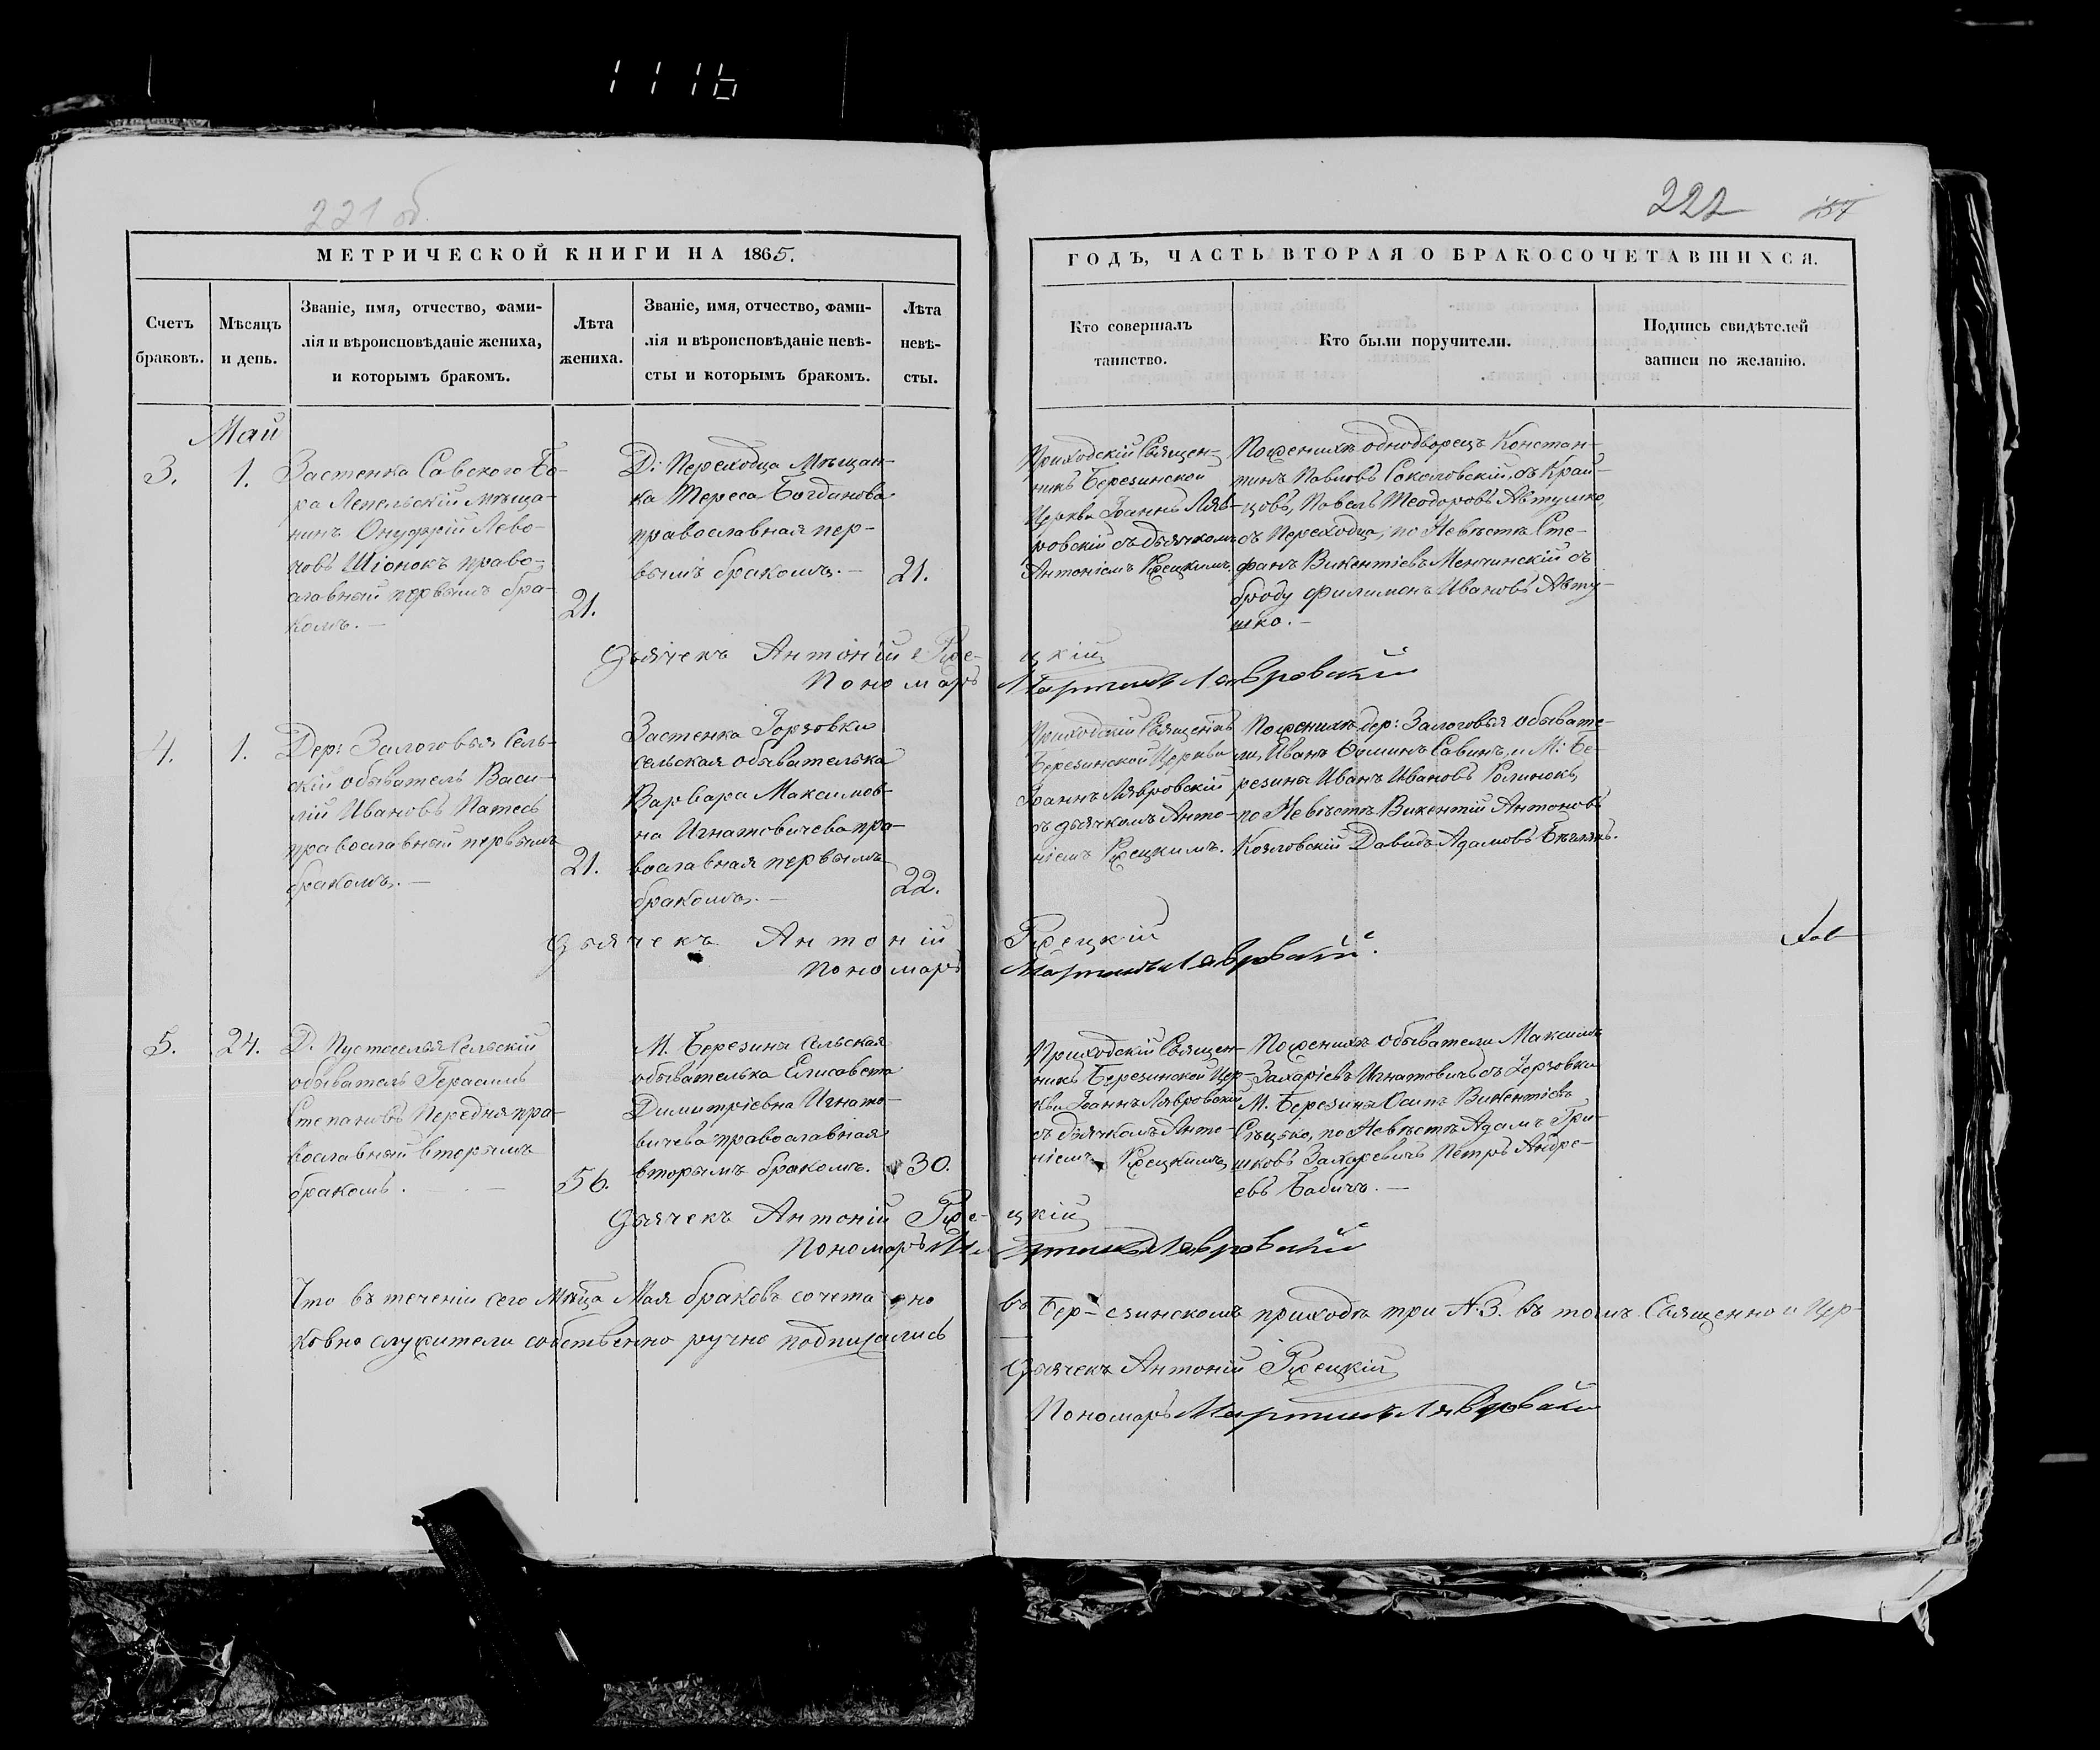 1116
221 об.
222
157
МЕТРИЧЕСКОЙ КНИГИ НА 1865.
ГОДЪ, ЧАСТЬ ВТОРАЯ О БРАКОСОЧЕТАВШИХСЯ.
Счетъ
браковъ.
Мѣсяцъ
и день.
Званіе, имя, отчество, фами-
лія и вѣроисповѣданіе жениха,
и которымъ бракомъ.
Лѣта
жениха.
Званіе, имя, отчество, фами-
лія и вѣроисповѣданіе невѣ-
сты и которымъ бракомъ.
Лѣта
невѣ-
сты.
Кто совершалъ
таинство.
Кто были поручители.
Подпись свидѣтелей
записи по желанію.
Май
3.
1.
Застенка Савского Бо-
ра Лепельскій мѣща-
нинъ Онуфрій Лево-
новъ Шіонокъ право-
славный первымъ бра-
комъ. —
21.
Д: Переходца Мѣщан-
ка Тереса Богданова
православная пер-
вымъ бракомъ. —
21.
Приходскій Священ-
никъ Березинской
Церкви Іоаннъ Ляв-
ровскій съ дьячкомъ
Антоніемъ Рѣецкимъ
По женихѣ однодворецъ Констан-
тинъ Павловъ Соколовскій, съ Край-
цовъ, Павелъ Теодоровъ Автушко,
съ Переходца, по Невѣстѣ Сте-
фанъ Викентіевъ Менчинскій съ
броду Филимонъ Ивановъ Авту-
шко. —
Дьячекъ Антоній Рѣе-цкій
Пономарь Мартинъ Лявровскій
4.
1.
Дер: Залоговья Сель-
скій обыватель Васи-
лій Ивановъ Патесь
православный первымъ
бракомъ. —
21.
Застенка Горзовки
сельская обывателька
Варвара Максимов-
на Игнатовичева пра-
вославная первымъ
бракомъ. —
22.
Приходскій Священикъ
Березинской Церкви
Іоаннъ Лявровскій
съ дьячкомъ Анто-
ніемъ Рѣецкимъ.
По женихѣ дер: Залоговья обывате-
ли, Иванъ Ѳоминъ Савинъ, и М: Бе-
резины Иванъ Ивановъ Ролинокъ,
по Невѣстѣ Викентій Антоновъ
Козловскій Давидъ Адамовъ
Дьячекъ Антоній Рѣецкій
Пономарь Мартинъ Лявровскій.
5.
24.
Д. Пустоселья Сельскій
обыватель Герасимъ
Степановъ Передня пра-
вославный вторымъ
бракомъ. — —
56.
М. Березины Сельская
обывателька Елисавета
Димитріевна Игнато-
вичева православная
вторымъ бракомъ.
30.
Приходскій Священ-
никъ Березинской Цер-
кви Іоаннъ Лявровскій
съ дьячкомъ Анто-
ніемъ Рѣецкимъ
По женихѣ обыватели Максимъ
Захаріевъ Игнатовичъ съ Горзовки
М. Березины Осипъ Викентіевъ
Сѣцько, по Невѣстѣ Адамъ Гри-
шковъ Захаревичъ Петръ Андре-
евъ Бабичъ. —
Дьячекъ Антоній Рѣе-цкій
Пономарь Мартинъ Лявровскій
Что въ теченіи сего Мѣца Мая браковъ сочетанно въ Бер-езинскомъ приходѣ три №3. въ томъ Священно и Цер-
ковно служители собственно ручно подписались
Дьячекъ Антоній Рѣецкій
Пономарь Мартинъ Лявровскій